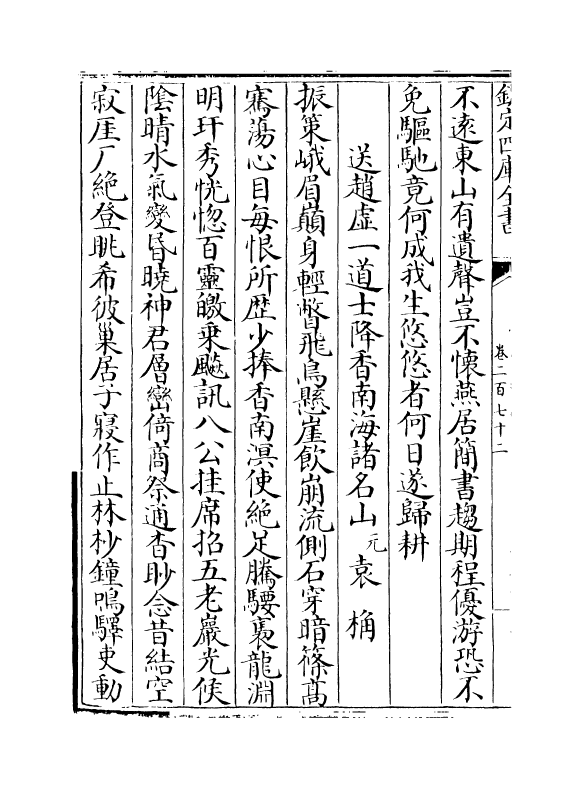 欽定四庫全書
卷二百七十二
不遠東山有遺聲豈不懷燕居簡書趨期程優游恐不
免驅馳竟何成我生悠悠者何日遂歸耕
送趙虚一道士降香南海諸名山元袁桷
振策峨眉巔身輕瞥飛鳥懸崖飲崩流側石穿暗篠髙
騫蕩心目每恨所歴少捧香南溟使絶足騰騕褭龍淵
明玕秀恍惚百靈皦乗飈訊八公挂席招五老巖光候
陰晴水氣變昏曉神君層巒倚啇祭通杳眇念昔結空
寂厓厂絶登眺希彼巢居子寢作止林杪鐘鳴驛吏動